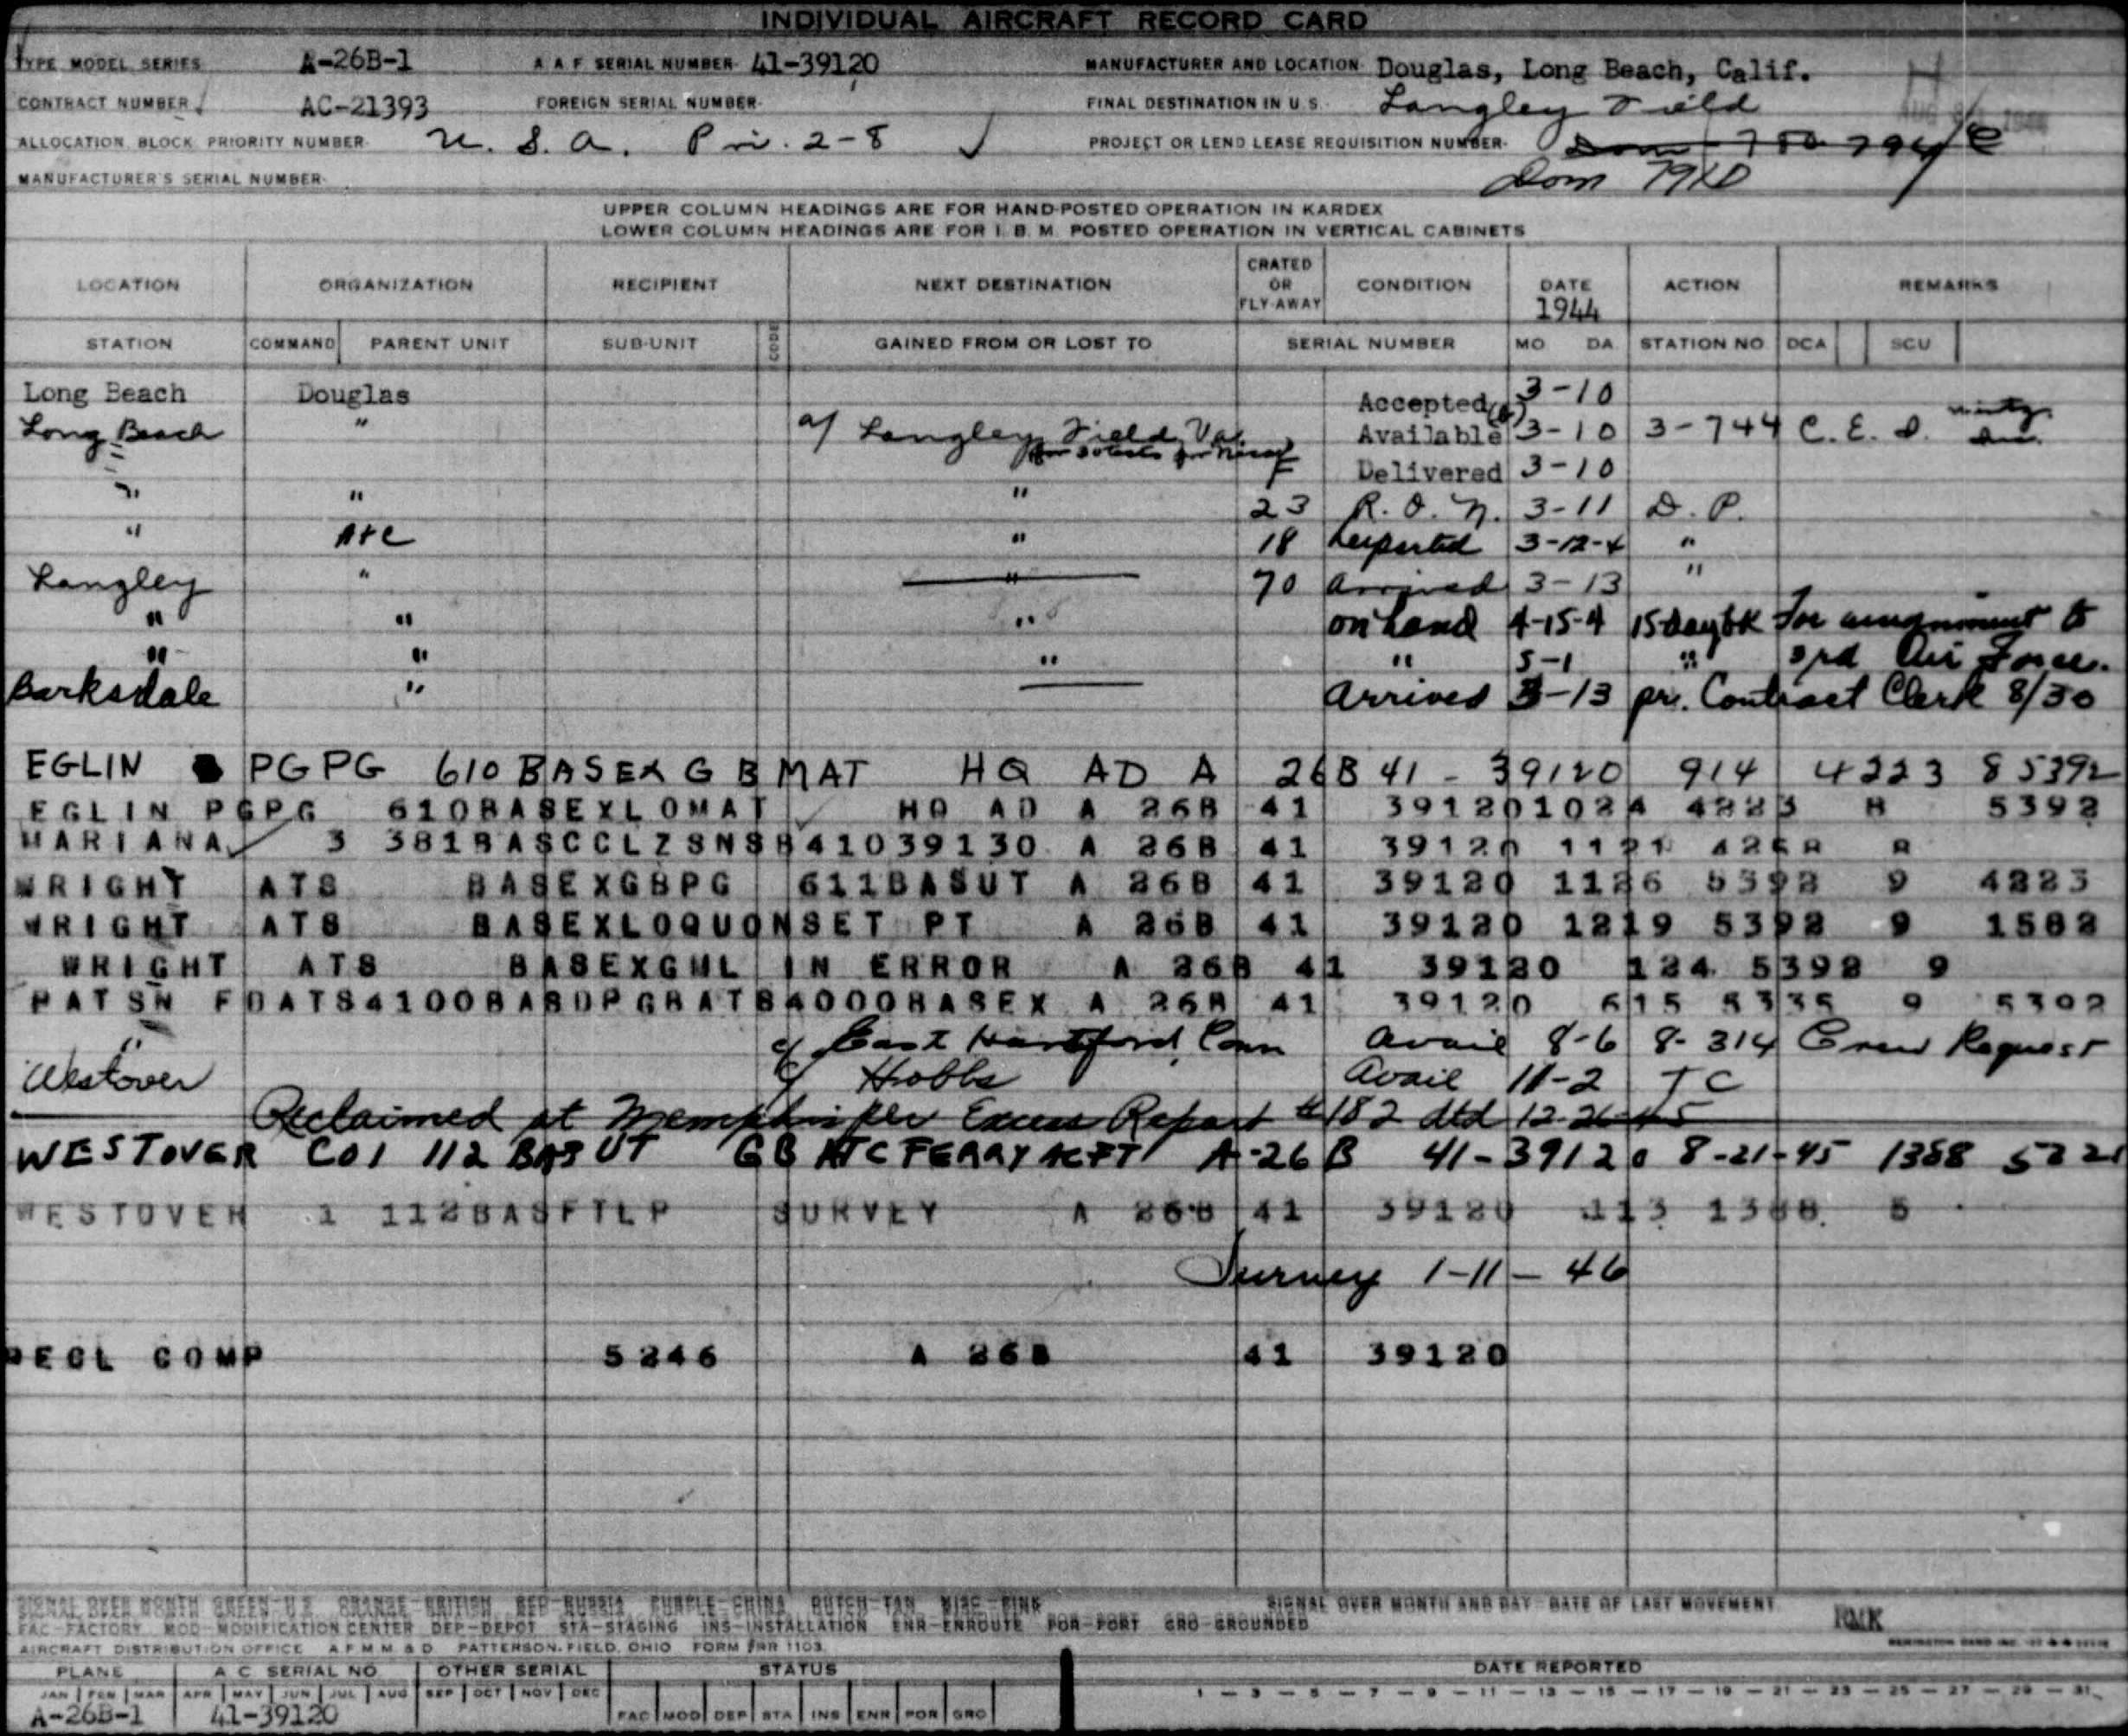 INDIVIDUAL AIRCRAFT RECORD CARD
TYPE MODEL SERIES A-26B-1 A.A.F. SERIAL NUMBER- 41-39120 MANUFACTURER AND LOCATION- Douglas, Long Beach, Calif.
CONTRACT NUMBER AC-21393 FOREIGN SERIAL NUMBER- FINAL DESTINATION IN U.S.- Langley Field
ALLOCATION BLOCK PRIORITY NUMBER- U. S. A. Pri. 2-8 PROJECT OR LEND LEASE REQUISITION NUMBER-
MANUFACTURER'S SERIAL NUMBER- Dom
UPPER COLUMN HEADINGS ARE FOR HAND-POSTED OPERATION IN KARDEX
LOWER COLUMN HEADINGS ARE FOR I. B. M. POSTED OPERATION IN VERTICAL CABINETS
LOCATION ORGANIZATION RECIPIENT NEXT DESTINATION CRATED OR FLY-AWAY CONDITION DATE 1944 ACTION REMARKS
STATION COMMAND PARENT UNIT SUB-UNIT CODE GAINED FROM OR LOST TO SERIAL NUMBER MO DA STATION NO DCA SCU
Long Beach Douglas Accepted 3-10
Long Beach " a/ Langley Field, Va. Available 3-10 3-744 C. E. D.
F Delivered 3-10
" " " 23 R. O. N. 3-11 D. P.
" ATC " 18 Departed 3-12-4 "
Langley " " 70 Arrived 3-13 "
" " " on hand 4-15-4 15 day bk For assignment to
" " " " 5-1 " 3rd Air Force.
Barksdale " Arrived 5-13 pr. Contract Clerk 8/30
EGLIN PGPG 610 BASEX G B MAT HQ AD A 26B 41 - 39120 914 4223 8 5392
EGLIN PGPG 610BASEXLOMAT HQ AD A 26B 41 391201024 4223 8 5392
MARIANA 3 381BASCCLZSNSB41039130 A 26B 41 39120 1121 4268 8
WRIGHT ATS BASEXGBPG 611BASUT A 26B 41 39120 1126 5392 9 4223
WRIGHT ATS BASEXLOQUONSET PT A 26B 41 39120 1219 5392 9 1582
WRIGHT ATS BASEXGML IN ERROR A 26B 41 39120 124 5392 9
PATSN FDATS4100BASDPGBATS4000BASEX A 26B 41 39120 615 5335 9 5392
" c/ East Hartford, Conn Avail 8-6 8-314 Crew Request
Westover c/ Hobbs Avail 11-2 TC
Reclaimed at Memphis per Excess Report #182 dtd 12-26-45
WESTOVER C01 112 BAS UT GB ATC FERRY ACFT A-26 B 41-39120 8-21-45 1388
WESTOVER 1 112BASFTLP SURVEY A 26B 41 39120 113 1388 5
Survey 1-11-46
RECL COMP 5246 A 26B 41 39120
SIGNAL OVER MONTH GREEN-U.S. ORANGE-BRITISH RED-RUSSIA PURPLE-CHINA DUTCH-TAN MISC-PINK SIGNAL OVER MONTH AND DAY-DATE OF LAST MOVEMENT
FAC-FACTORY MOD-MODIFICATION CENTER DEP-DEPOT STA-STAGING INS-INSTALLATION ENR-ENROUTE POR-PORT GRO-GROUNDED RMK
AIRCRAFT DISTRIBUTION OFFICE A F M M & D PATTERSON FIELD, OHIO FORM 1103
PLANE A C SERIAL NO OTHER SERIAL STATUS DATE REPORTED
JAN FEB MAR APR MAY JUN JUL AUG SEP OCT NOV DEC 1 - 3 - 5 - 7 - 9 - 11 - 13 - 15 - 17 - 19 - 21 - 23 - 25 - 27 - 29 - 31
A-26B-1 41-39120 FAC MOD DEP STA INS ENR POR GRO